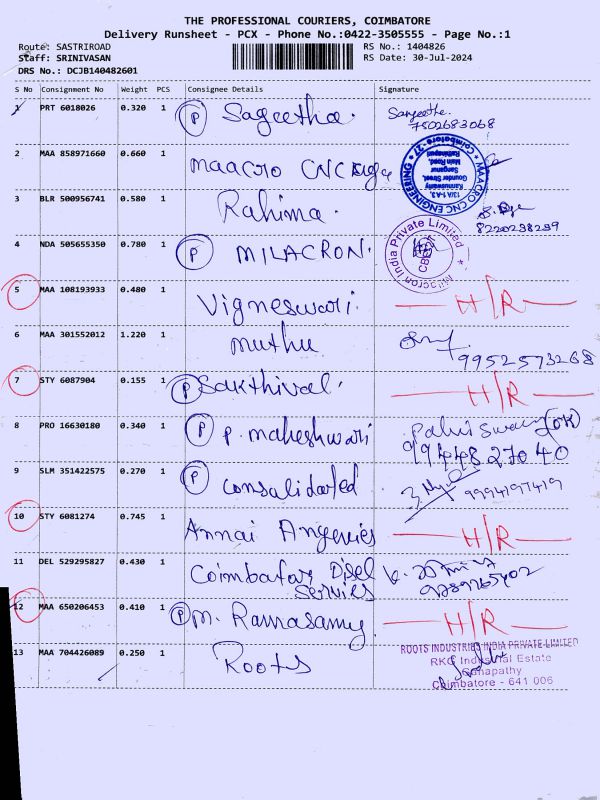 THE PROFESSIONAL COURIERS, COIMBATORE
Delivery Runsheet - PCX - Phone No.:0422-3505555 - Page No.:1
Route: SASTRIROAD RS No.: 1404826
Staff: SRINIVASAN RS Date: 30-Jul-2024
DRS No.: DCJB140482601
S No Consignment No Weight PCS Consignee Details Signature
1 PRT 6018026 0.320 1 P Sageetha. Sangeetha. 7502683068
2 MAA 858971660 0.660 1 MAACRO CNC
MAACRO CNC ENGINEERING
12/A 1-A3,
Kannuswamy
Gounder Street,
Sanganur
Main Road,
Rathinapuri
Coimbatore - 27
3 BLR 500956741 0.580 1 Rahima. 8220238239
4 NDA 505655350 0.780 1 P MILACRON.
Milacron India Private Limited
5 MAA 108193933 0.480 1 Vigneswari. H/R
6 MAA 301552012 1.220 1 muthu 9952573268
7 STY 6087904 0.155 1 P Sakthival. H/R
8 PRO 16630180 0.340 1 P P. maheshwari Palniswamy (OK)
9944827040
9 SLM 351422575 0.270 1 P Consalidated 9994197419
10 STY 6081274 0.745 1 Annai Angenies H/R
11 DEL 529295827 0.430 1 Coimbatar Disel
Servies
12 MAA 650206453 0.410 1 P M. Ramasamy H/R
13 MAA 704426089 0.250 1 Roots
ROOTS INDUSTRIES INDIA PRIVATE LIMITED
RKG Industrial Estate
Ganapathy
Coimbatore - 641 006